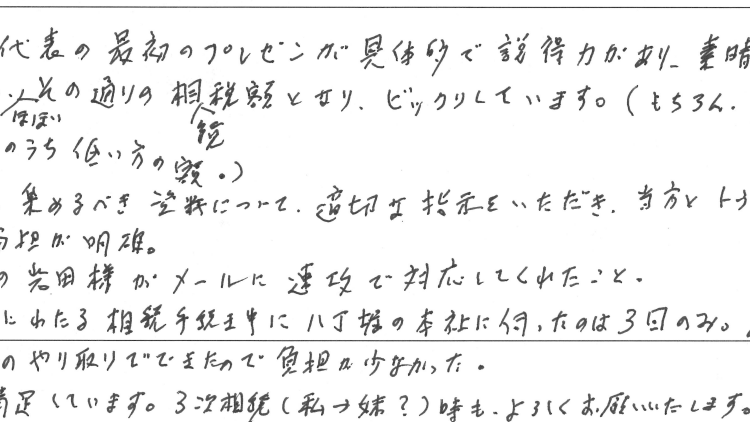 代表の最初のプレゼンが具体的で説得力があり、素晴
その通りの相続税額となり、ビックリしています。(もちろん、
ほぼ
のうち低い方の額。)
集めるべき資料について、適切な指示をいただき、当方とトラ
担が明確。
の岩田様がメールに速攻で対応してくれたこと。
にわたる相続手続き中に八丁堀の本社に伺ったのは3回のみ。
のやり取りでできたので負担が少なかった。
満足しています。3次相続(私→妹?)時も、よろしくお願いいたします。